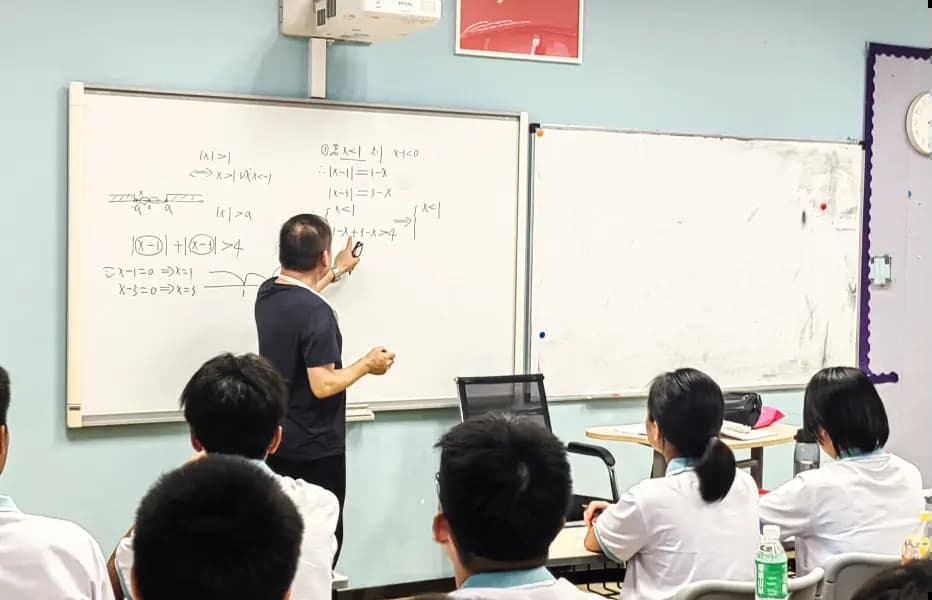 |x|>1
⟺ x>1 或 x<-1
-a 0 a
|x|>a
|x-1|+|x-3|>4
x-1=0 ⇒x=1
x-3=0 ⇒x=3
1
① 若 x<1 则 x-1<0
∴|x-1|=1-x
|x-3|=3-x
{ x<1
1-x+3-x>4
⟹ { x<1
EPSON